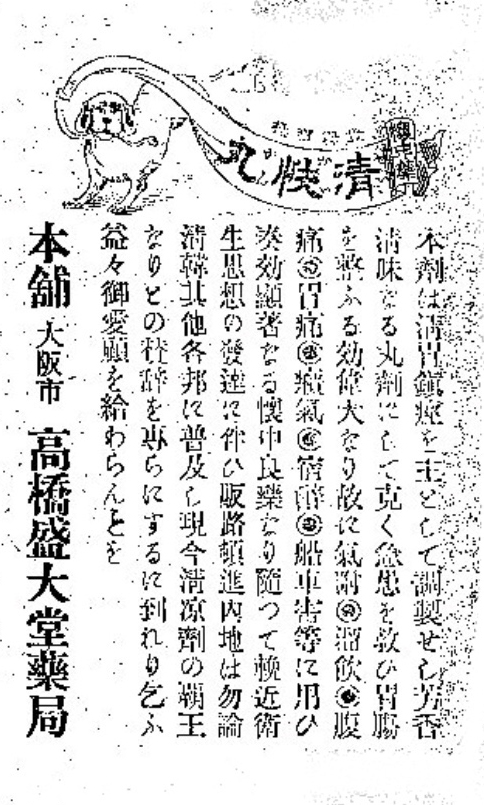 清快丸
本劑は清胃鎮痙を主として調製せし芳香
清味なる丸劑にして克く急患を救ひ胃膓
を整ふる効偉大なり故に氣附◉溜飲◉腹
痛◉胃痛◉癪氣◉宿醉◉船車害等に用ひ
奏効顯著なる懷中良藥なり隨つて輓近衛
生思想の發達に伴ひ販路頓進內地は勿論
清韓其他各邦に普及し現今清凉劑の覇王
なりとの賛辞を専らにするに到れり乞ふ
益々御愛顧を給わらんとを
本舖 大阪市 高橋盛大堂藥局